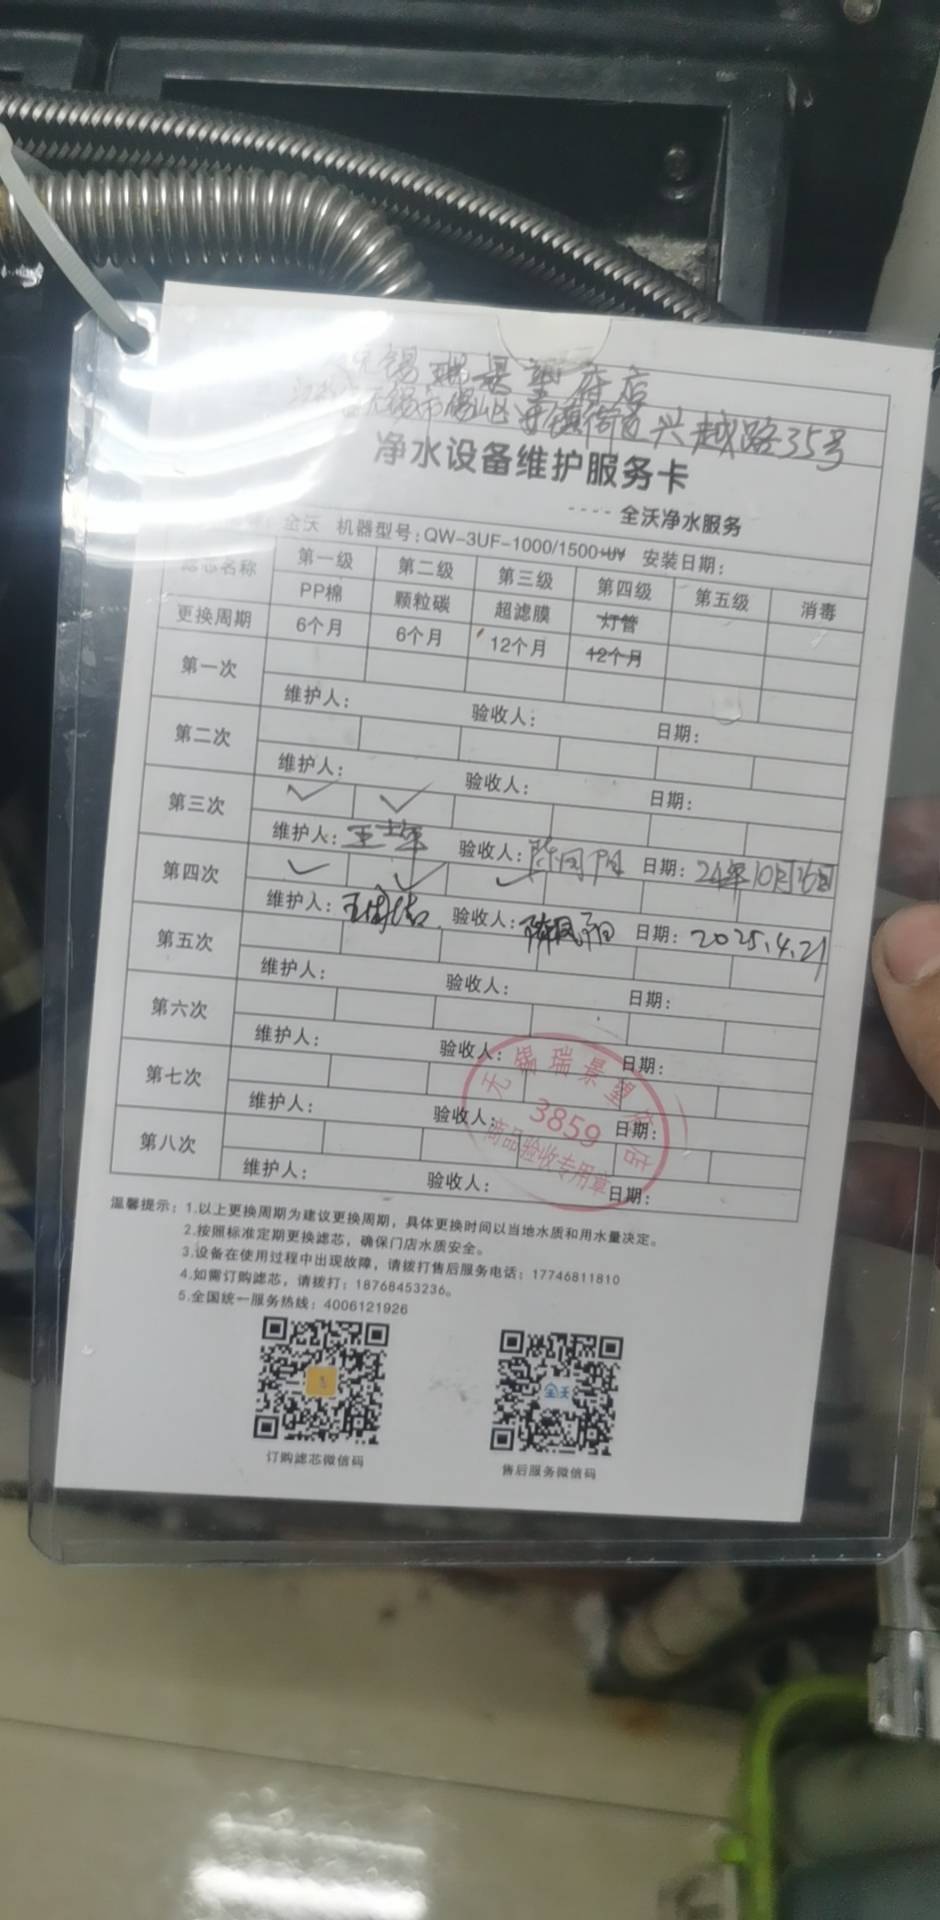 无锡瑞景望府店
无锡市锡山区 街道兴越路35号
净水设备维护服务卡
----全沃净水服务
全沃 机器型号:QW-3UF-1000/1500+UV 安装日期:
滤芯名称 第一级 第二级 第三级 第四级 第五级 消毒
PP棉 颗粒碳 超滤膜 灯管
更换周期 6个月 6个月 12个月 12个月
第一次
维护人: 验收人: 日期:
第二次
维护人: 验收人: 日期:
第三次 ✓ ✓
维护人: 王 年 验收人: 陈 日期: 24年10月16日
第四次 ✓ ✓ ✓
维护人: 王 验收人: 陈 日期: 2025.4.21
第五次
维护人: 验收人: 日期:
第六次
维护人: 验收人: 日期:
第七次
维护人: 验收人: 日期:
第八次
维护人: 验收人: 日期:
无锡瑞景望府店
3859
商品验收专用章
温馨提示:1.以上更换周期为建议更换周期,具体更换时间以当地水质和用水量决定。
2.按照标准定期更换滤芯,确保门店水质安全。
3.设备在使用过程中出现故障,请拨打售后服务电话:17746811810
4.如需订购滤芯,请拨打:18768453236。
5.全国统一服务热线:4006121926
全沃
订购滤芯微信码
售后服务微信码